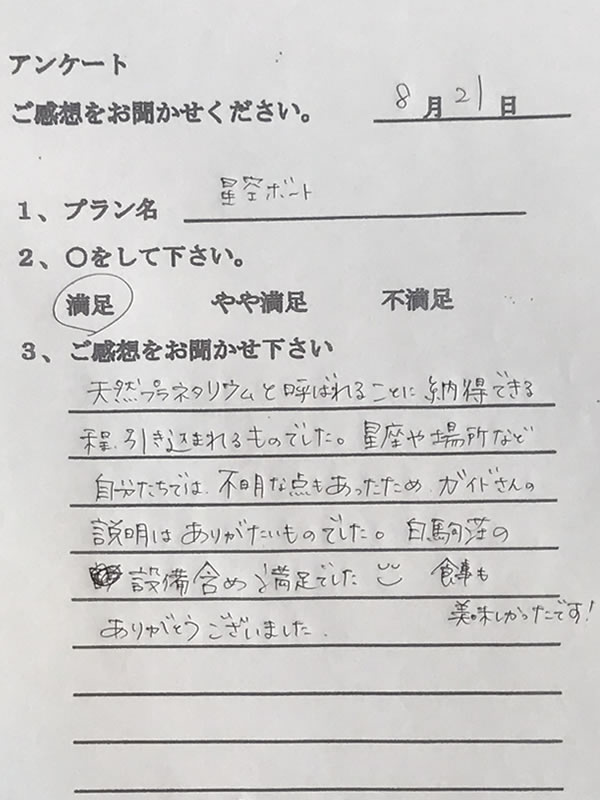 アンケート
ご感想をお聞かせください。 8月21日
1、プラン名 星空ボート
2、〇をして下さい。
満足 やや満足 不満足
3、ご感想をお聞かせ下さい
天然プラネタリウムと呼ばれることに納得できる
程、引き込まれるものでした。星座や場所など
自分たちでは、不明な点もあったため、ガイドさんの
説明はありがたいものでした。白駒荘の
設備含め満足でした 食事も
美味しかったです!
ありがとうございました.